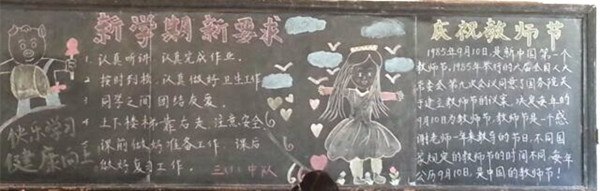 新学期新要求
1、认真听讲,认真完成作业。
2、按时到校,认真做好卫生工作
3、同学之间团结友爱。
4、上下楼梯靠右走,注意安全
5、课前做好准备工作,课后
做好复习工作。
三(1)中队
快乐学习
健康向上
庆祝教师节
1985年9月10日,是新中国第一个
教师节,1985年举行的六届全国人大
常委会第九次会议同意了国务院关
于建立教师节的议案,决定每年的
9月10日为教师节,教师节是一个感
谢老师一年来教导的节日,不同国
家规定的教师节的时间不同,每年
公历9月10日,是中国的教师节!